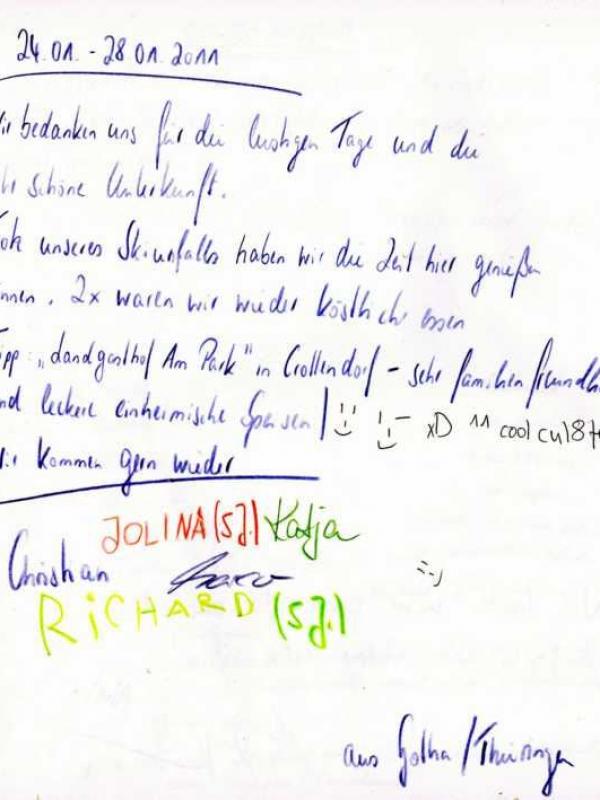 24.01. - 28.01.2011
ir bedanken uns für die lustigen Tage und die
schöne Unterkunft.
unseres Skiunfalls haben wir die Zeit hier genießen
nnen. 2x waren wir wieder köstlich essen
ipp: „Landgasthof Am Park" in Crottendorf - sehr familienfreundli
nd leckere einheimische Speisen!
xD ^^ cool cul8
ir kommen gern wieder
JOLINA (5J.) Katja
Christian
RiCHARD (5J.)
:-)
aus Gotha/Thüringen